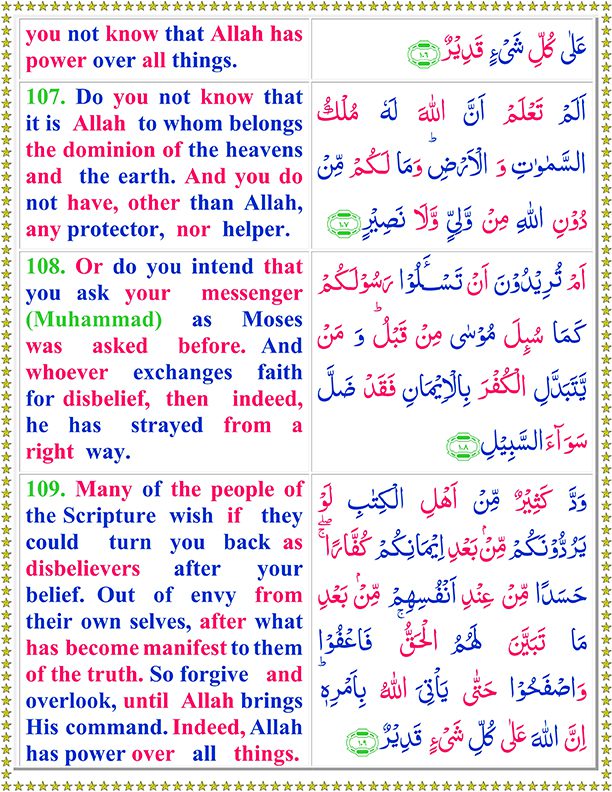 you not know that Allah has
power over all things.
عَلٰى كُلِّ شَىْءٍ قَدِيْرٌ ﴿۱۰۶﴾
107. Do you not know that
it is Allah to whom belongs
the dominion of the heavens
and the earth. And you do
not have, other than Allah,
any protector, nor helper.
اَلَمْ تَعْلَمْ اَنَّ اللّٰهَ لَهٗ مُلْكُ
السَّمٰوٰتِ وَ الْاَرْضِ ؕ وَمَا لَكُمْ مِّنْ
دُوْنِ اللّٰهِ مِنْ وَّلِيٍّ وَّلَا نَصِيْرٍ ﴿۱۰۷﴾
108. Or do you intend that
you ask your messenger
(Muhammad) as Moses
was asked before. And
whoever exchanges faith
for disbelief, then indeed,
he has strayed from a
right way.
اَمْ تُرِيْدُوْنَ اَنْ تَسْـَٔلُوْا رَسُوْلَكُمْ
كَمَا سُىِٕلَ مُوْسٰى مِنْ قَبْلُ ؕ وَ مَنْ
يَّتَبَدَّلِ الْكُفْرَ بِالْاِيْمَانِ فَقَدْ ضَلَّ
سَوَآءَ السَّبِيْلِ ﴿۱۰۸﴾
109. Many of the people of
the Scripture wish if they
could turn you back as
disbelievers after your
belief. Out of envy from
their own selves, after what
has become manifest to them
of the truth. So forgive and
overlook, until Allah brings
His command. Indeed, Allah
has power over all things.
وَدَّ كَثِيْرٌ مِّنْ اَهْلِ الْكِتٰبِ لَوْ
يَرُدُّوْنَكُمْ مِّنْۢ بَعْدِ اِيْمَانِكُمْ كُفَّارًا ۖۚ
حَسَدًا مِّنْ عِنْدِ اَنْفُسِهِمْ مِّنْۢ بَعْدِ
مَا تَبَيَّنَ لَهُمُ الْحَقُّ ۚ فَاعْفُوْا
وَاصْفَحُوْا حَتّٰى يَاْتِىَ اللّٰهُ بِاَمْرِهٖ ؕ
اِنَّ اللّٰهَ عَلٰى كُلِّ شَىْءٍ قَدِيْرٌ ﴿۱۰۹﴾